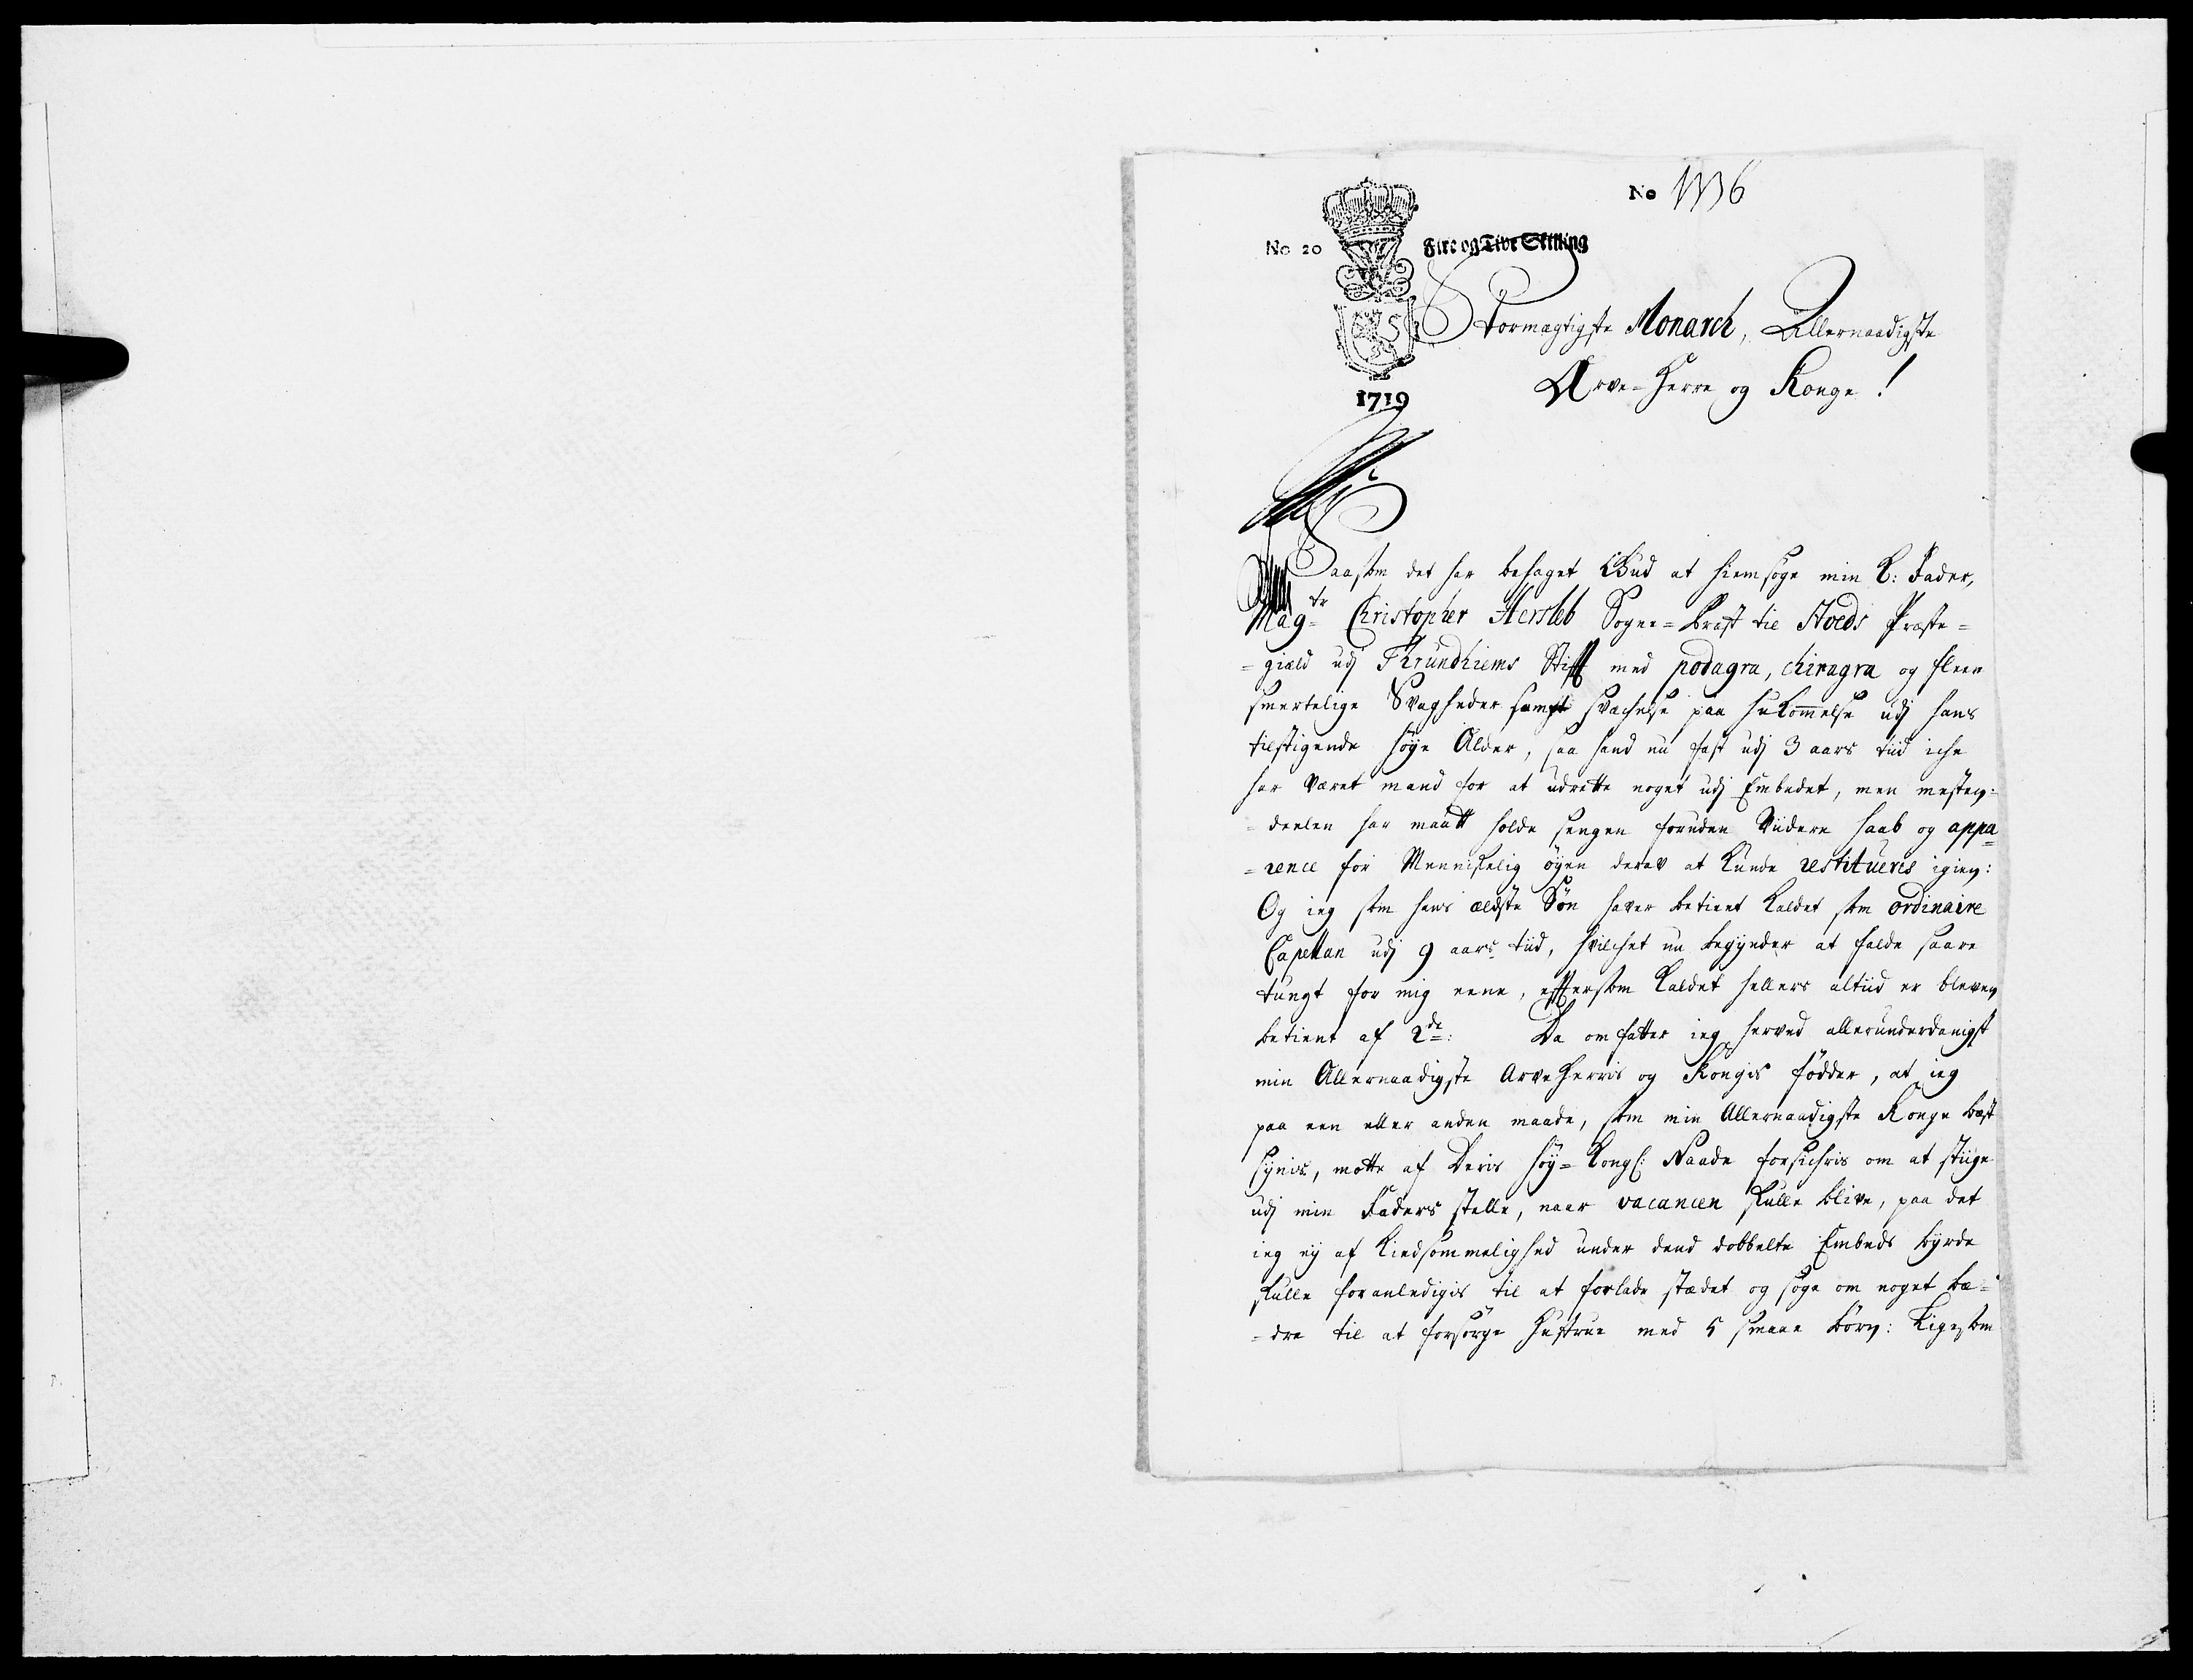 No 1336
No 20
Fire og Tive Skilling
Stormægtigste Monarch, Allernaadigste
Arve-Herre og Konge!
1719
Saasom det har behaget Gud at hiemsöge min K: Fader,
Mag:tr Christopher Hersleb Sogne-Præst til Stoeds Præste-
-giæld udj Thrundhiems Stifft med podagra, chiragra og fleere
smertelige Svagheder sampt svæchelse paa hukommelse udj hans
tilstigende høye Alder, saa hand nu fast udj 3 aars tiid iche
har været mand for at udrette noget udj Embedet, men mesten-
-deelen har maatt holde sengen foruden Viidere haab og appa-
-rence for Menniskelig øyen derav at kunde restitueris igien:
Og ieg som hans ældste Søn haver betient kaldet som ordinaire
Capellan udj 9 aars tiid, hvilchet nu begynder at falde saare
tungt for mig eene, efftersom kaldet hellers altiid er bleven
betient af 2de: Da omfatter ieg herved allerunderdanigst
min Allernaadigste Arve Herris og Kongis fødder, at ieg
paa een eller anden maade, som min Allernaadigste Konge best
synis, motte af Deris høy-Kongl: Naade forsichris om at stiige
udj min Faders stelle, naar vacancen skulle blive, paa det
ieg ey af Kiedsommelighed under dend dobbelte Embeds byrde
skulle foranledigis til at forlade stædet og søge om noget bæ-
-dre til at forsørge Hustrue med 5 smaae børn: Ligesom